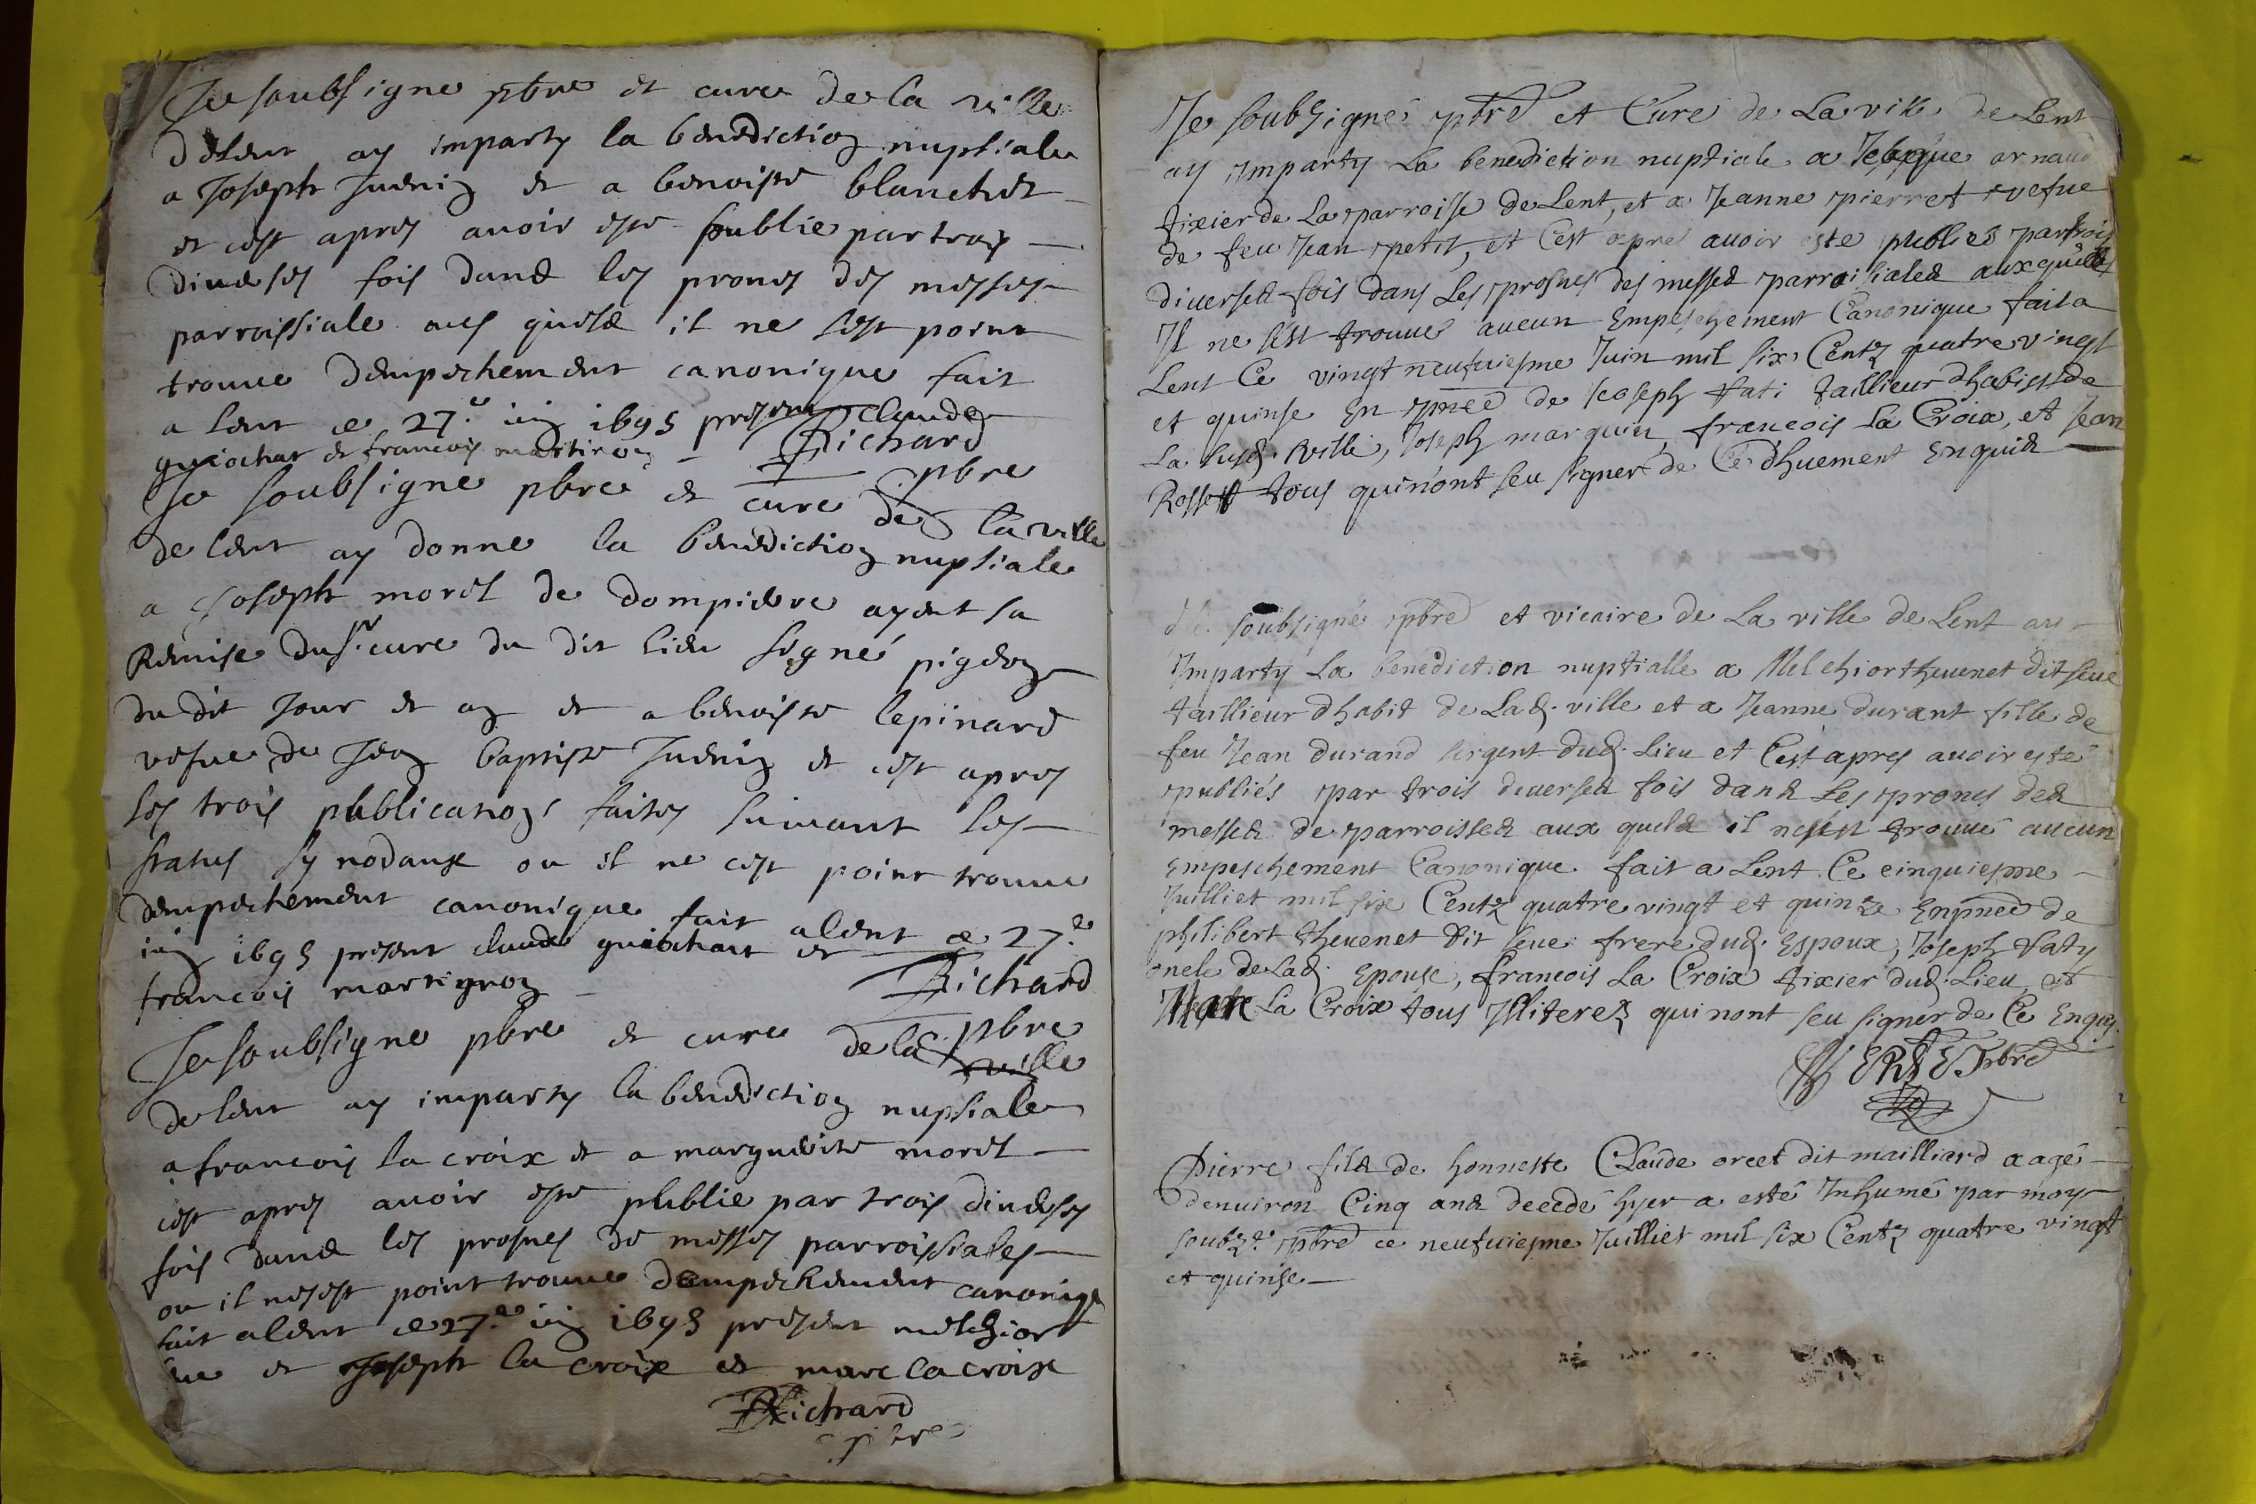 Je soubsigne pbre et cure de la ville
delent ay imparty la benediction nuptiale
a Joseph Juenin et a benoiste blanchet
et cest apres avoir este publie par trois
diverses fois dans les prones des messes
parroissiale aus quels il ne sest point
trouve dempechement canonique fait
a lent ce 27e iuin 1695 present Claude
guiochat et francois martinon
Richard
pbre
Je soubsigne pbre et cure de la ville
de lent ay donne la benediction nuptiale
a Joseph morel de dompiere ayent sa
Remise du sr. cure du dit lieu signé pigeon
du dit jour et an et a benoiste lepinard
vefue de Jean baptiste Juenin et cest apres
les trois publications faites suivant les
status synodaux ou il ne cest point trouve
dempechement canonique fait alent ce 27e
iuin 1695 present claude guiochat et
francois martignon
Richard
pbre
Je soubsigne pbre et cure de la ville
de lent ay imparty la benediction nuptiale
a francois la croix et a marguerite morel
cest apres avoir este publie par trois diverses
fois dans les prosnes de messes parroissiales
ou il nesest point trouve dempechement canoniq
fait alent ce 27e iuin 1695 present melchior
sue et Joseph la croix et marc la croix
Richard
pbre
Je soubsigné pbre et Curé de La ville de Lent
ay Imparty La benediction nuptiale a arnaud
tixier de La parroisse de Lent, et a Jeanne pierret vefue
de feu Jean petit, et Cest apre avoir este publiés par trois
diverses fois dans Les prosnes des messes parroisiales auxquelles
Il ne sest trouvé aucun Empeschement Canonique fait a
Lent Ce vingt neufuiesme Juin mil six Centz quatre vingt
et quinse En pnce de Joseph tati taillieur dhabist de
La susd. ville, Joseph marquin, francois La Croix, et Jean
Rosset tous quinont seu signer de Ce dhuement Enquis
Je soubsigné pbre et vicaire de La ville de Lent ay
Imparty La benediction nuptialle a Melchior theuenet dit seue
taillieur dhabit de Lad. ville et a Jeanne durant fille de
feu Jean durand sergent dud. Lieu et Cest apres avoir esté
publiés par trois diverses fois dans Les prones des
messes de parroisses aux quels il nesest trouvé aucun
Empeschement Canonique fait a Lent Ce cinquiesme
Juilliet mil six Centz quatre vingt et quinze En pnce de
philibert theuenet dit seue frere dud. Espoux, Joseph taty
oncle de Lad. Epouse, francois La Croix tixier dud. Lieu et
Marc La Croix tous Illiterez qui nont seu signer de Ce Enquis
pbre
Pierre fils de honneste Claude orcet dit mailliard aagé
denuiron Cinq ans decedé hyer a esté Inhumé par moy
soubz.e pbre ce neufuiesme Juilliet mil six Centz quatre vingt
et quinse